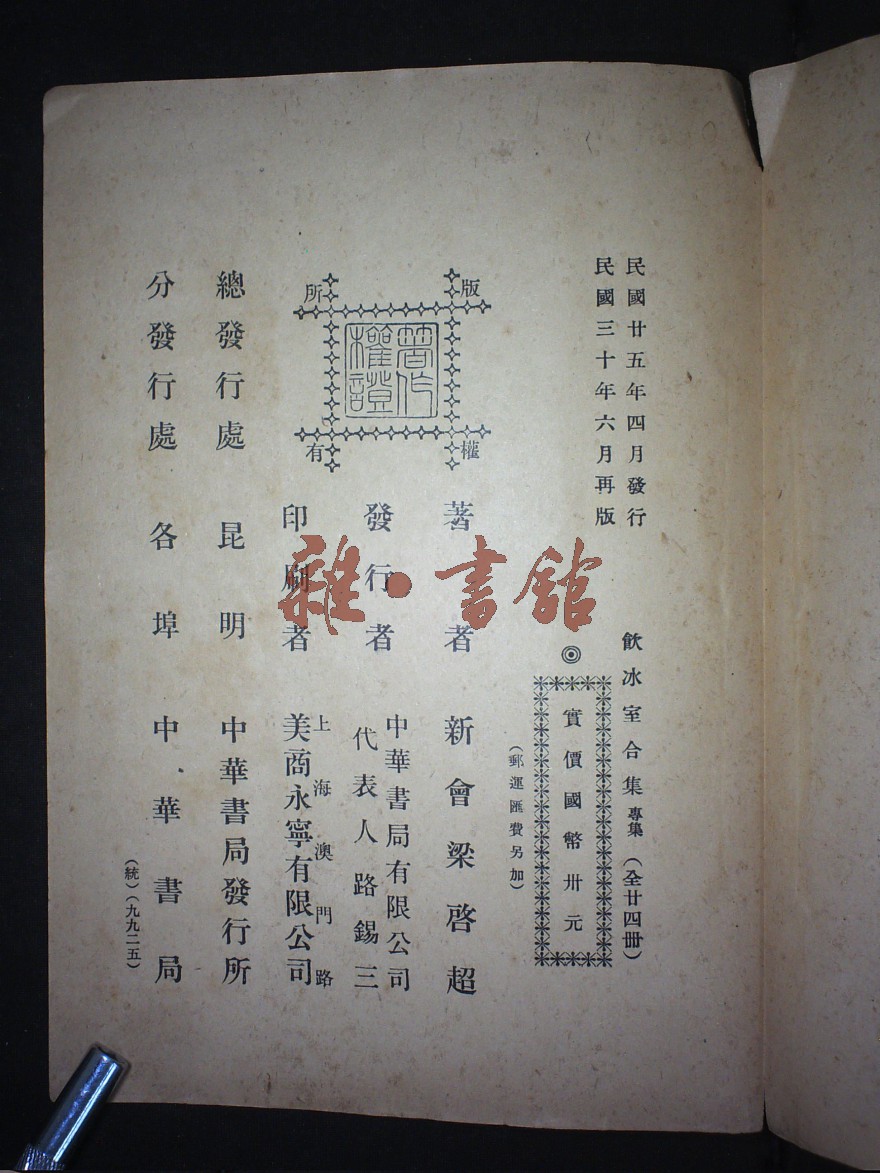 民國廿五年四月發行
民國三十年六月再版
飲冰室合集專集(全廿四冊)
◎實價國幣卅元
(郵運匯費另加)
版權所有
著作權證
著者 新會梁啓超
發行者 中華書局有限公司
代表人路錫三
印刷者 上海澳門路
美商永寧有限公司
總發行處 昆明 中華書局發行所
分發行處 各埠 中華書局
(統)(九九二五)
雜·書館